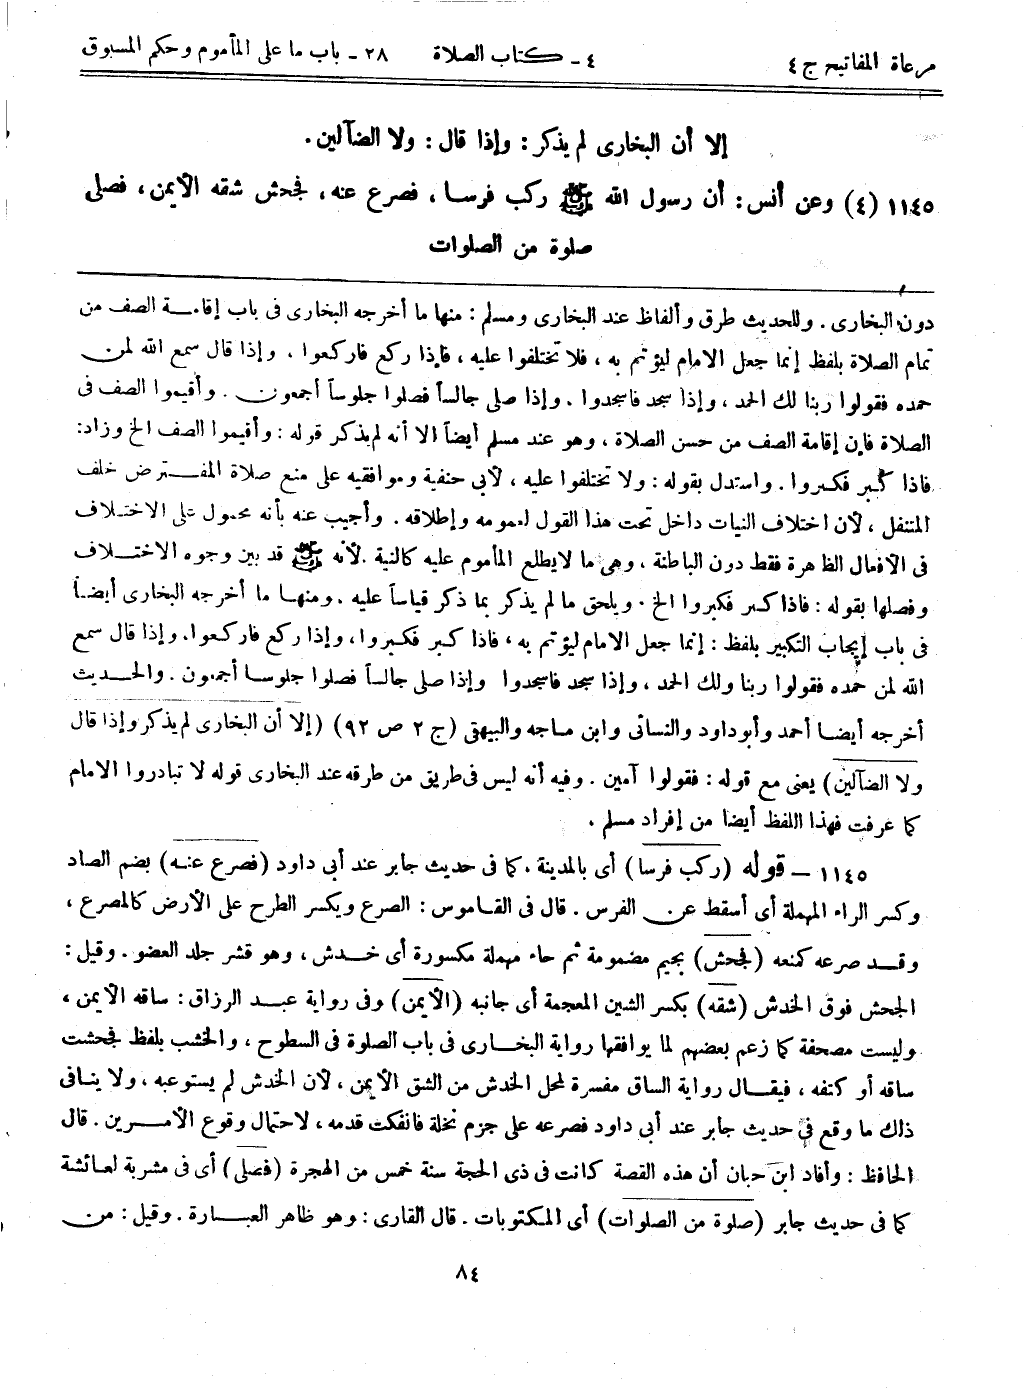 مرعاة المفاتيح ج ٤ ٤ ـ كتاب الصلاة ٢٨ ـ باب ما على المأموم وحكم المسبوق
إلا أن البخارى لم يذكر : وإذا قال : ولا الضآلين .
١١٤٥ (٤) وعن أنس : أن رسول الله ﷺ ركب فرسا ، فصرع عنه ، فجحش شقه الأيمن ، فصلى
صلوة من الصلوات
دون البخارى . وللحديث طرق وألفاظ عند البخارى ومسلم : منها ما أخرجه البخارى فى باب إقامــة الصف من
تمام الصلاة بلفظ إنما جعل الامام ليؤتم به ، فلا تختلفوا عليه ، فإذا ركع فاركعوا . وإذا قال سمع الله لمن
حمده فقولوا ربنا لك الحمد ، وإذا سجد فاسجدوا . وإذا صلى جالساً فصلوا جلوساً أجمعون . وأقيموا الصف فى
الصلاة فإن إقامة الصف من حسن الصلاة ، وهو عند مسلم أيضاً الا أنه لم يذكر قوله : وأقيموا الصف الخ وزاد :
فاذا كبر فكبروا . واستدل بقوله : ولا تختلفوا عليه ، لأبى حنفية وموافقيه على منع صلاة المفترض خلف
المتنفل ، لأن اختلاف النيات داخل تحت هذا القول لعمومه وإطلاقه . وأجيب عنه بأنه محمول على الاختلاف
فى الأفعال الظاهرة فقط دون الباطنة ، وهى ما لا يطلع المأموم عليه كالنية . لأنه ﷺ قد بين وجوه الاختــلاف
وفصلها بقوله : فاذا كبر فكبروا الخ . ويلحق ما لم يذكر بما ذكر قياساً عليه . ومنهــا ما أخرجه البخارى أيضــاً
فى باب إيجاب التكبير بلفظ : إنما جعل الامام ليؤتم به ، فاذا كبر فكبروا ، وإذا ركع فاركعوا . وإذا قال سمع
الله لمن حمده فقولوا ربنا ولك الحمد ، وإذا سجد فاسجدوا وإذا صلى جالساً فصلوا جلوسا أجمعون . والحــديث
أخرجه أيضــا أحمد وأبو داود والنسائى وابن مـاجه والبيهقى (ج ٢ ص ٩٢) (إلا أن البخارى لم يذكر وإذا قال
ولا الضآلين) يعنى مع قوله : فقولوا آمين . وفيه أنه ليس فى طريق من طرقه عند البخارى قوله لا تبادروا الامام
كما عرفت فهذا اللفظ أيضا من إفراد مسلم .
١١٤٥ ــ قوله (ركب فرسا) أى بالمدينة ، كما فى حديث جابر عند أبى داود (فصرع عنــه) بضم الصاد
وكسر الراء المهملة أى أسقط عن الفرس . قال فى القاموس : الصرع ويكسر الطرح على الأرض كالمصرع ،
وقــد صرعه كمنعه (فجحش) بجيم مضمومة ثم حاء مهملة مكسورة أى خــدش ، وهو قشر جلد العضو . وقيل :
الجحش فوق الخدش (شقه) بكسر الشين المعجمة أى جانبه (الأيمن) وفى رواية عبــد الرزاق : ساقه الأيمن ،
وليست مصحفة كما زعم بعضهم لما يوافقها رواية البخــارى فى باب الصلوة فى السطوح ، والخشب بلفظ فجحشت
ساقه أو كتفه ، فيقــال رواية الساق مفسرة لمحل الخدش من الشق الأيمن ، لأن الخدش لم يستوعبه ، ولا ينافى
ذلك ما وقع فى حديث جابر عند أبى داود فصرعه على جزم نخلة فانفكت قدمه ، لاحتمال وقوع الأمــرين . قال
الحافظ : وأفاد ابن حبان أن هذه القصة كانت فى ذى الحجة سنة خمس من الهجرة (فصلى) أى فى مشربة لعــائشة
كما فى حديث جابر (صلوة من الصلوات) أى المكتوبات . قال القارى : وهو ظاهر العبــارة . وقيل : من
٨٤